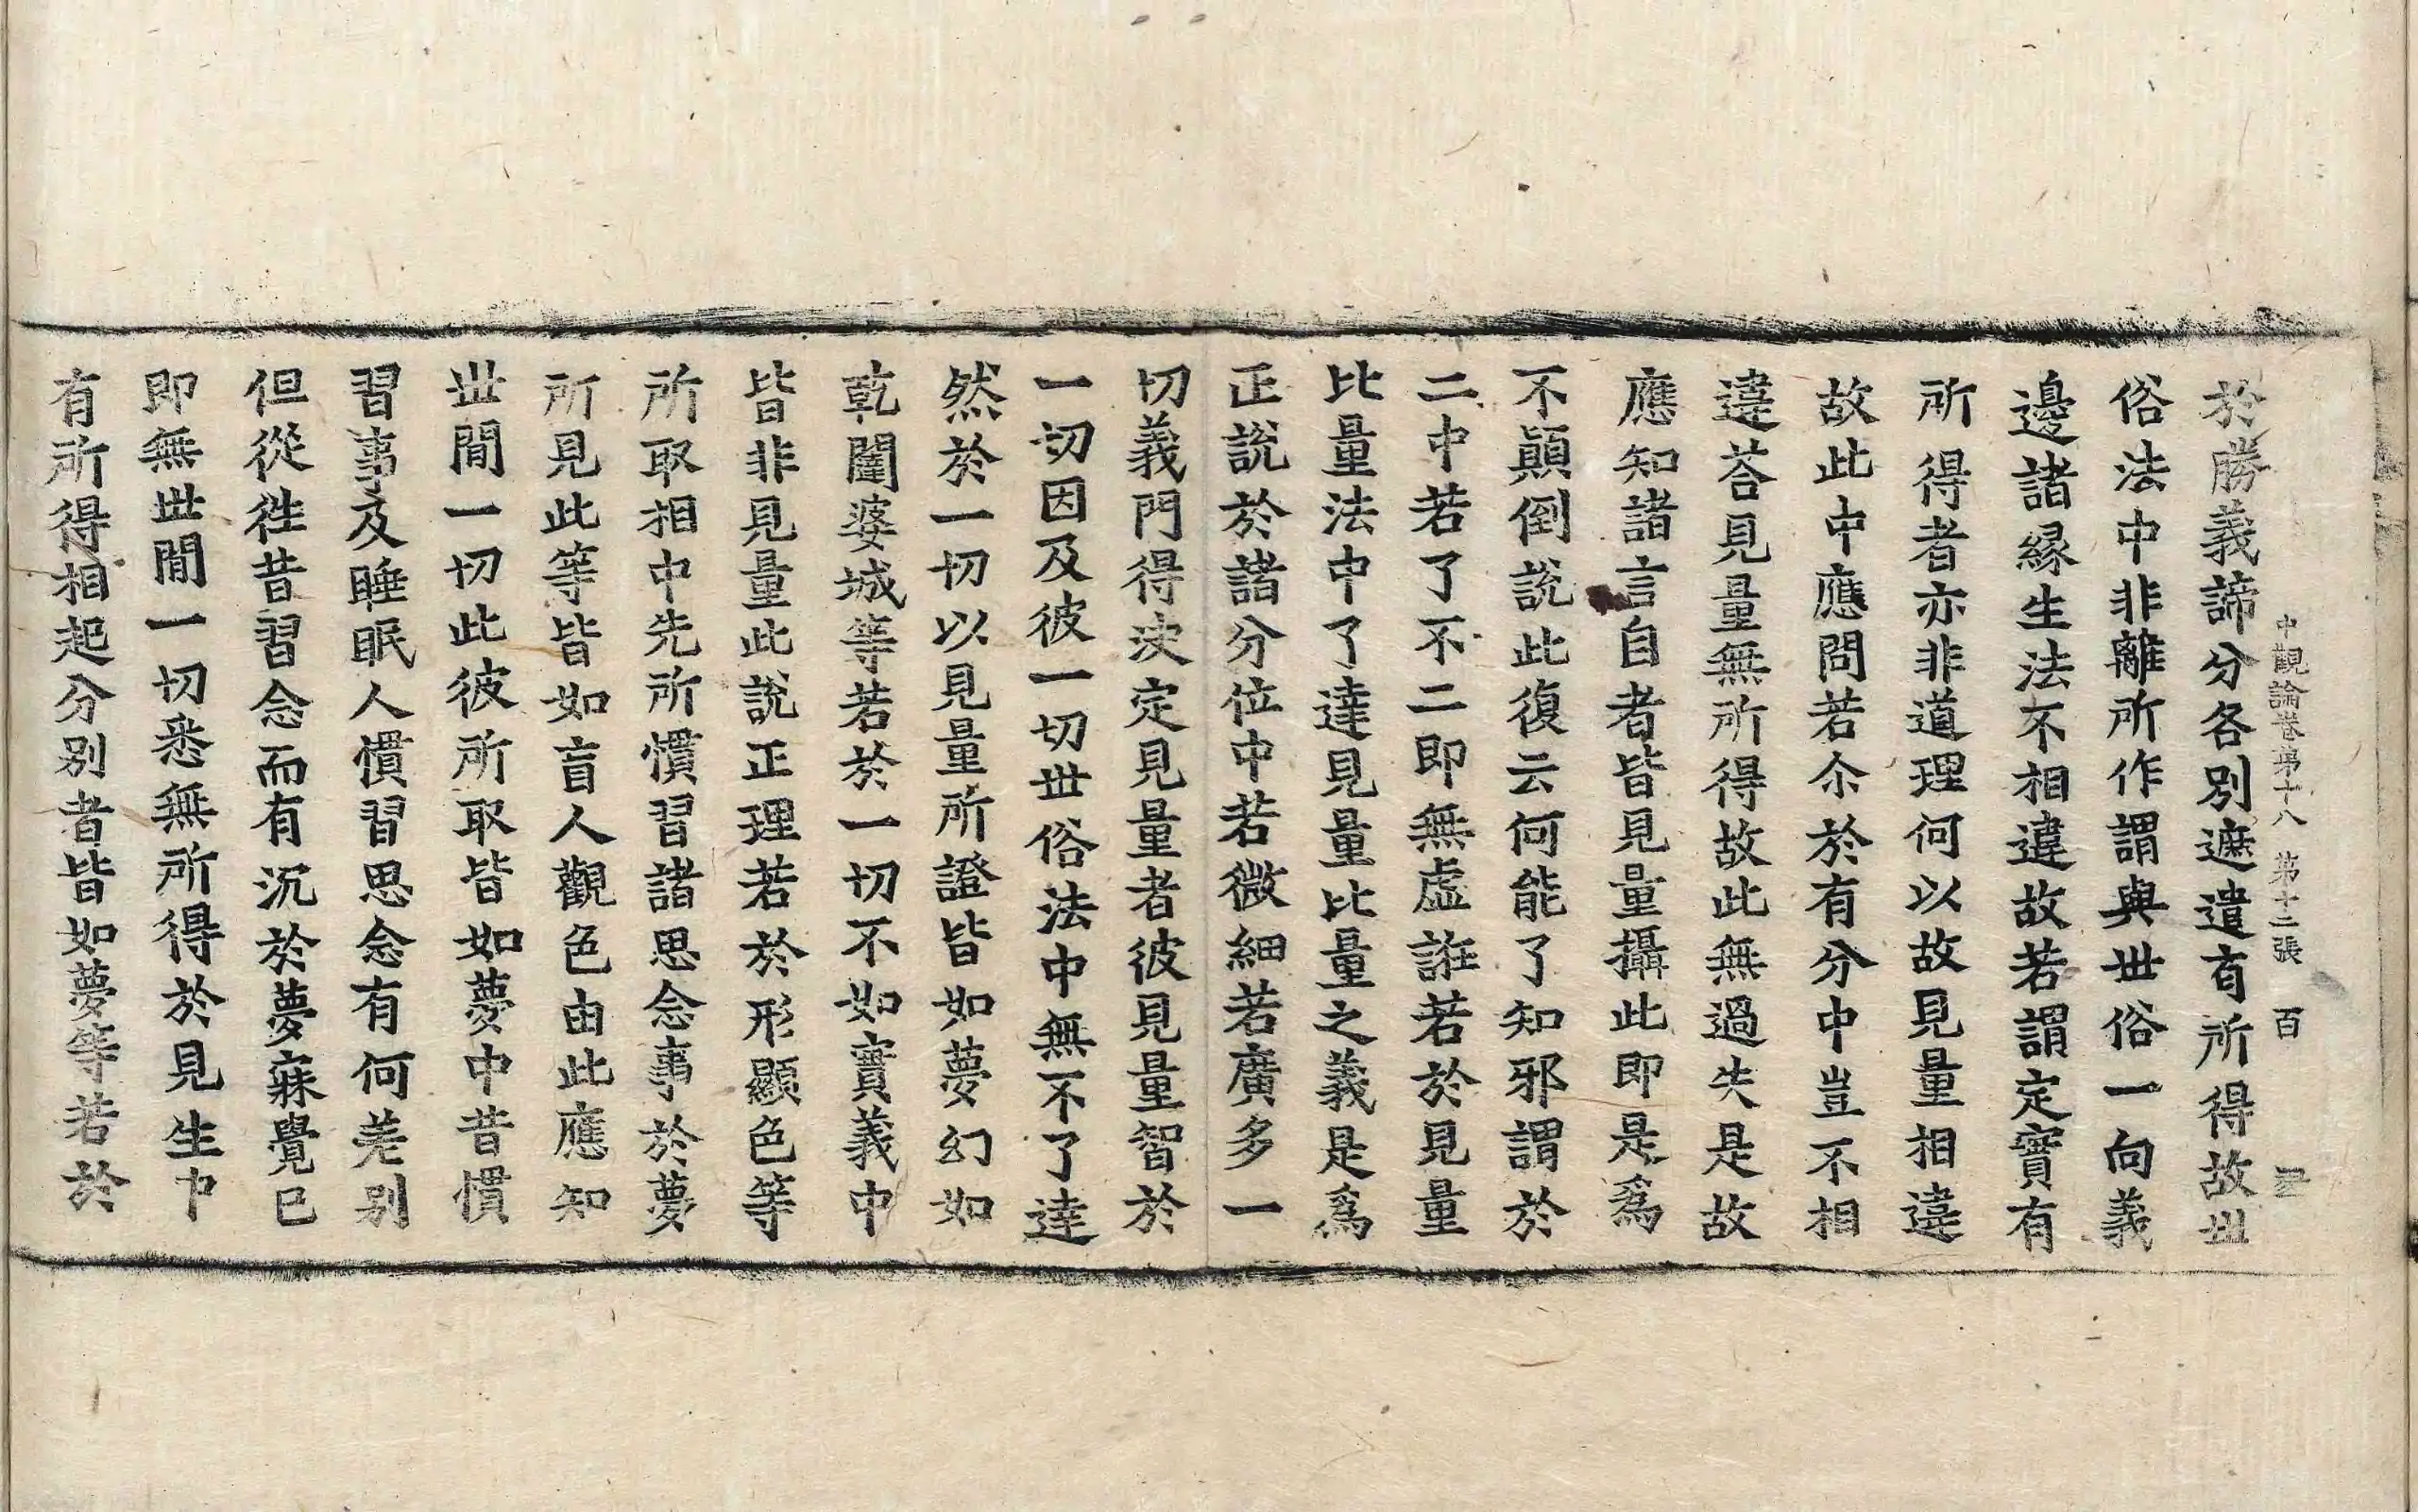 中觀論卷第十八 第十二張 百
於勝義諦分各別遮遣有所得故世
俗法中非離所作謂與世俗一向義
邊諸緣生法不相違故若謂定實有
所得者亦非道理何以故見量相違
故此中應問若尒於有分中豈不相
違荅見量無所得故此無過失是故
應知諸言自者皆見量攝此即是爲
不顛倒說此復云何能了知邪謂於
二中若了不二即無虛誑若於見量
比量法中了達見量比量之義是爲
正說於諸分位中若微細若廣多一
切義門得決定見量者彼見量智於
一切因及彼一切世俗法中無不了達
然於一切以見量所證皆如夢幻如
乾闥婆城等若於一切不如實義中
皆非見量此說正理若於形顯色等
所取相中先所慣習諸思念事於夢
所見此等皆如盲人觀色由此應知
世間一切此彼所取皆如夢中昔慣
習事及睡眠人慣習思念有何差別
但從徃昔習念而有沉於夢寐覺已
即無世間一切悉無所得於見生中
有所得相起分別者皆如夢等若於